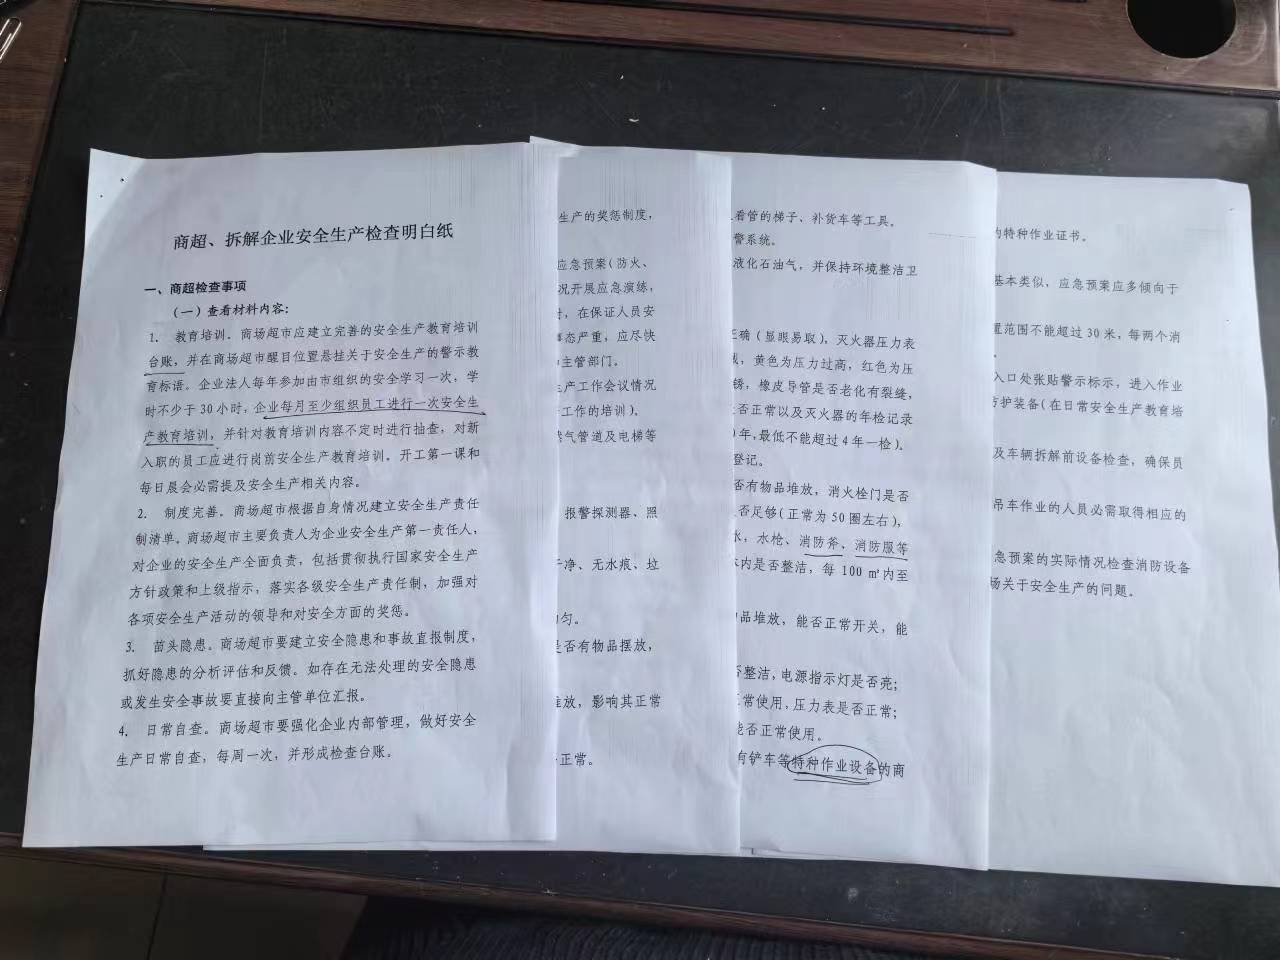 商超、拆解企业安全生产检查明白纸
一、商超检查事项
（一）查看材料内容：
1. 教育培训。商场超市应建立完善的安全生产教育培训
台账，并在商场超市醒目位置悬挂关于安全生产的警示教
育标语。企业法人每年参加由市组织的安全学习一次，学
时不少于30小时，企业每月至少组织员工进行一次安全生
产教育培训，并针对教育培训内容不定时进行抽查，对新
入职的员工应进行岗前安全生产教育培训。开工第一课和
每日晨会必需提及安全生产相关内容。
2. 制度完善。商场超市根据自身情况建立安全生产责任
制清单。商场超市主要负责人为企业安全生产第一责任人，
对企业的安全生产全面负责，包括贯彻执行国家安全生产
方针政策和上级指示，落实各级安全生产责任制，加强对
各项安全生产活动的领导和对安全方面的奖惩。
3. 苗头隐患。商场超市要建立安全隐患和事故直报制度，
抓好隐患的分析评估和反馈。如存在无法处理的安全隐患
或发生安全事故要直接向主管单位汇报。
4. 日常自查。商场超市要强化企业内部管理，做好安全
生产日常自查，每周一次，并形成检查台账。
生产的奖惩制度，
应急预案（防火、
况开展应急演练，
，在保证人员安
事态严重，应尽快
主管部门。
生产工作会议情况
工作的培训）。
燃气管道及电梯等
报警探测器、照
干净、无水痕、垃
匀。
是否有物品摆放，
堆放，影响其正常
正常。
看管的梯子、补货车等工具。
警系统。
液化石油气，并保持环境整洁卫
正确（显眼易取），灭火器压力表
，黄色为压力过高，红色为压
锈，橡皮导管是否老化有裂缝，
是否正常以及灭火器的年检记录
年，最低不能超过4年一检）。
登记。
否有物品堆放，消火栓门是否
是否足够（正常为50圈左右），
水，水枪、消防斧、消防服等
体内是否整洁，每100㎡内至
物品堆放，能否正常开关，能
否整洁，电源指示灯是否亮；
正常使用，压力表是否正常；
能否正常使用。
有铲车等特种作业设备的商
的特种作业证书。
基本类似，应急预案应多倾向于
置范围不能超过30米，每两个消
入口处张贴警示标示，进入作业
防护装备（在日常安全生产教育培
及车辆拆解前设备检查，确保员
吊车作业的人员必需取得相应的
急预案的实际情况检查消防设备
场关于安全生产的问题。